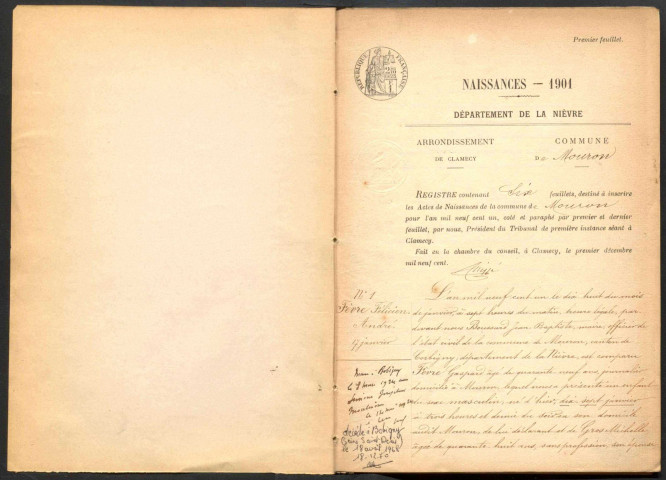 Premier feuillet.
RÉPUBLIQUE FRANÇAISE
NAISSANCES — 1901
DÉPARTEMENT DE LA NIÈVRE
ARRONDISSEMENT
DE CLAMECY
COMMUNE
De Mouron
REGISTRE contenant Six feuillets, destiné à inscrire
les Actes de Naissances de la commune de Mouron
pour l'an mil neuf cent un, coté et paraphé par premier et dernier
feuillet, par nous, Président du Tribunal de première instance séant à
Clamecy.
Fait en la chambre du conseil, à Clamecy, le premier décembre
mil neuf cent.
N° 1
Fèvre Félicien
André
7 janvier
L'an mil neuf cent un le dix huit du mois
de janvier, à sept heures du matin, heure légale, par
devant nous Boussard Jean Baptiste, maire, officier de
l'état civil de la commune de Mouron, canton de
Corbigny, département de la Nièvre, est comparu
Fèvre Gaspard âgé de quarante neuf ans journalier
domicilié à Mouron, lequel nous a présenté un enfant
du sexe masculin, né d'hier, dix sept janvier
à trois heures et demie du soir en son domicile
audit Mouron, de lui déclarant et de Gros Michelle
âgée de quarante huit ans, sans profession, son épouse
Marié à Bobigny
le
décédé à Bobigny
le 18 avril 1968